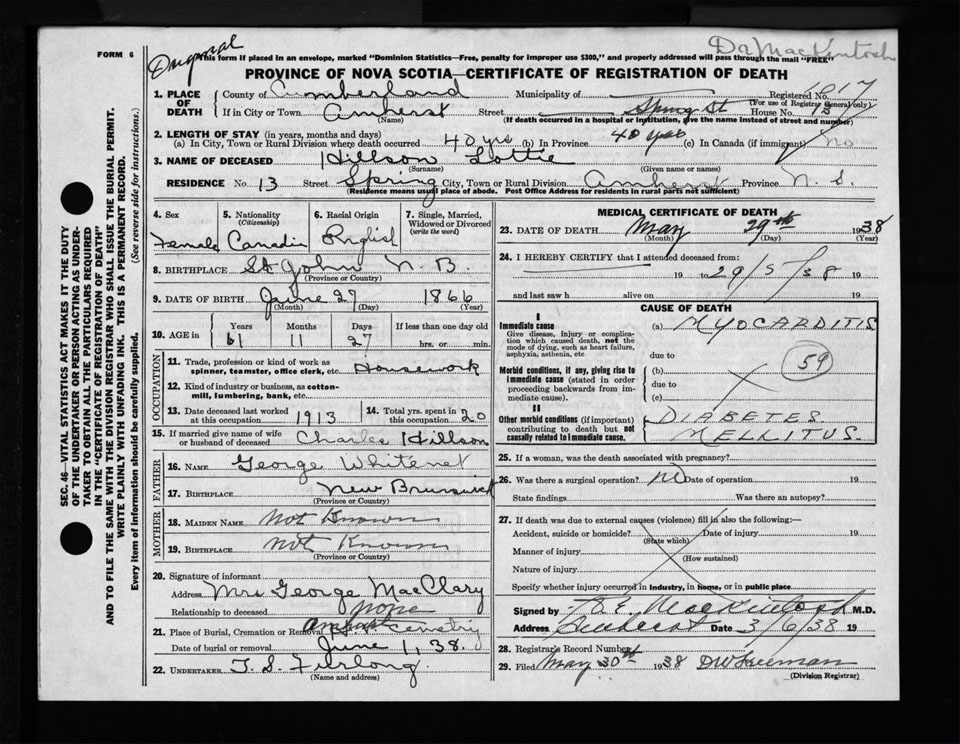 FORM 6
Original
Dr MacKintosh
This form if placed in an envelope, marked "Dominion Statistics—Free, penalty for improper use $300," and properly addressed will pass through the mail "FREE"
PROVINCE OF NOVA SCOTIA—CERTIFICATE OF REGISTRATION OF DEATH
1. PLACE OF DEATH
County of Cumberland Municipality of Registered No. 617
(For use of Registrar General only)
If in City or Town Amherst Street Spring St House No. 13
(Name) (If death occurred in a hospital or institution, give the name instead of street and number)
2. LENGTH OF STAY (in years, months and days)
(a) In City, Town or Rural Division where death occurred 40 yrs (b) In Province 40 yrs (c) In Canada (if immigrant) No
3. NAME OF DECEASED Hillson Lottie
(Surname) (Given name or names)
RESIDENCE No 13 Street Spring City, Town or Rural Division Amherst Province N. S.
(Residence means usual place of abode. Post Office Address for residents in rural parts not sufficient)
SEC. 46—VITAL STATISTICS ACT MAKES IT THE DUTY
OF THE UNDERTAKER OR PERSON ACTING AS UNDER-
TAKER TO OBTAIN ALL THE PARTICULARS REQUIRED
IN THE "CERTIFICATE OF REGISTRATION OF DEATH"
AND TO FILE THE SAME WITH THE DIVISION REGISTRAR WHO SHALL ISSUE THE BURIAL PERMIT.
WRITE PLAINLY WITH UNFADING INK. THIS IS A PERMANENT RECORD.
Every item of information should be carefully supplied. (See reverse side for instructions.)
4. Sex
Female
5. Nationality
(Citizenship)
Canadin
6. Racial Origin
English
7. Single, Married, Widowed or Divorced
(write the word)
8. BIRTHPLACE St John N. B.
(Province or Country)
9. DATE OF BIRTH June 27 1866
(Month) (Day) (Year)
10. AGE in
Years Months Days If less than one day old
61 11 27 hrs. or min.
OCCUPATION
11. Trade, profession or kind of work as spinner, teamster, office clerk, etc. Housework
12. Kind of industry or business, as cotton-mill, lumbering, bank, etc.
13. Date deceased last worked at this occupation 1913
14. Total yrs. spent in this occupation 20
15. If married give name of wife or husband of deceased Charles Hillson
FATHER
16. NAME George
17. BIRTHPLACE New Brunswick
(Province or Country)
MOTHER
18. MAIDEN NAME Not Known
19. BIRTHPLACE Not Known
(Province or Country)
20. Signature of informant
Address Mrs George MacClary
Relationship to deceased none
21. Place of Burial, Cremation or Removal Amherst Cemetry
Date of burial or removal June 1, 38.
22. UNDERTAKER T. S. Furlong
(Name and address)
MEDICAL CERTIFICATE OF DEATH
23. DATE OF DEATH May 29th 1938
(Month) (Day) (Year)
24. I HEREBY CERTIFY that I attended deceased from:
19 to 29/5/38 19
and last saw h alive on 19
CAUSE OF DEATH
I
Immediate cause
Give disease, injury or complication which caused death, not the mode of dying, such as heart failure, asphyxia, asthenia, etc
(a) MYOCARDITIS
due to
Morbid conditions, if any, giving rise to immediate cause (stated in order proceeding backwards from immediate cause).
(b)
59
due to
(c)
II
Other morbid conditions (if important) contributing to death but not causally related to immediate cause.
DIABETES
MELLITUS.
25. If a woman, was the death associated with pregnancy?
26. Was there a surgical operation? no Date of operation 19
State findings Was there an autopsy?
27. If death was due to external causes (violence) fill in also the following:—
Accident, suicide or homicide? Date of injury 19
(State which)
Manner of injury
(How sustained)
Nature of injury
Specify whether injury occurred in industry, in home, or in public place
Signed by MacKintosh M.D.
Address Amherst Date 3/6/38 19
28. Registrar's Record Number
29. Filed May 30th 1938 DW Freeman
(Division Registrar)